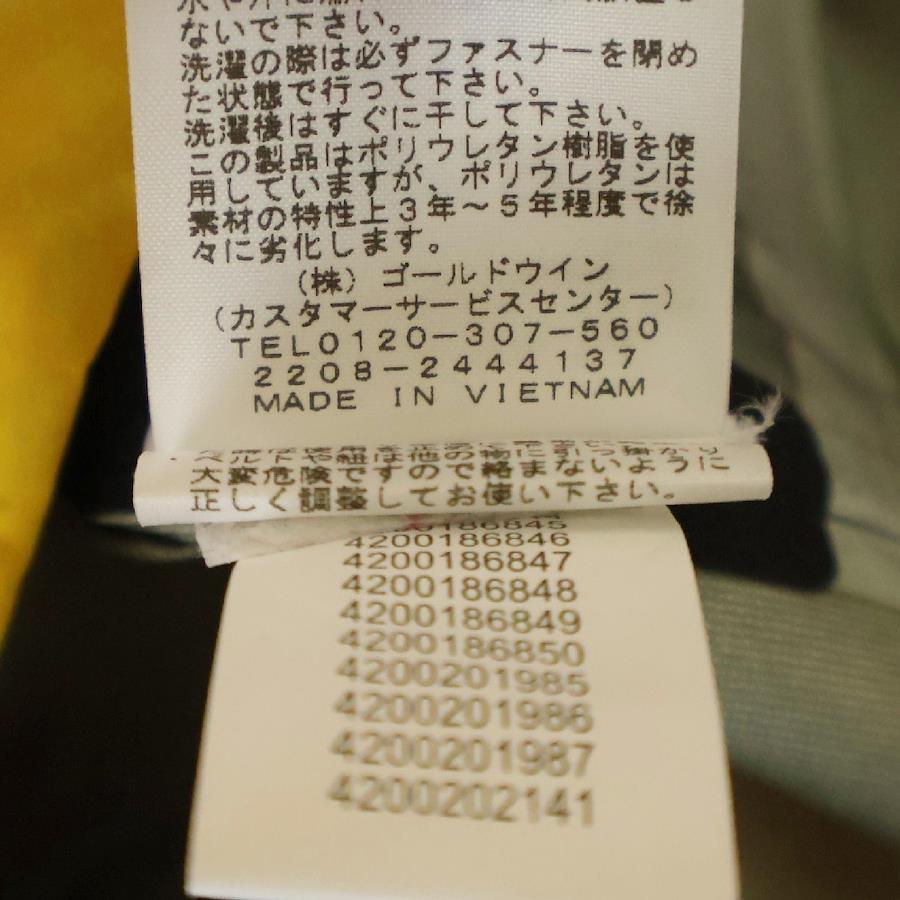 ないで下さい。
洗濯の際は必ずファスナーを閉め
た状態で行って下さい。
洗濯後はすぐに干して下さい。
この製品はポリウレタン樹脂を使
用していますが、ポリウレタンは
素材の特性上3年～5年程度で徐
々に劣化します。
(株)ゴールドウイン
(カスタマーサービスセンター)
TEL0120-307-560
2208-2444137
MADE IN VIETNAM
大変危険ですので絡まないように
正しく調整してお使い下さい。
4200186845
4200186846
4200186847
4200186848
4200186849
4200186850
4200201985
4200201986
4200201987
4200202141